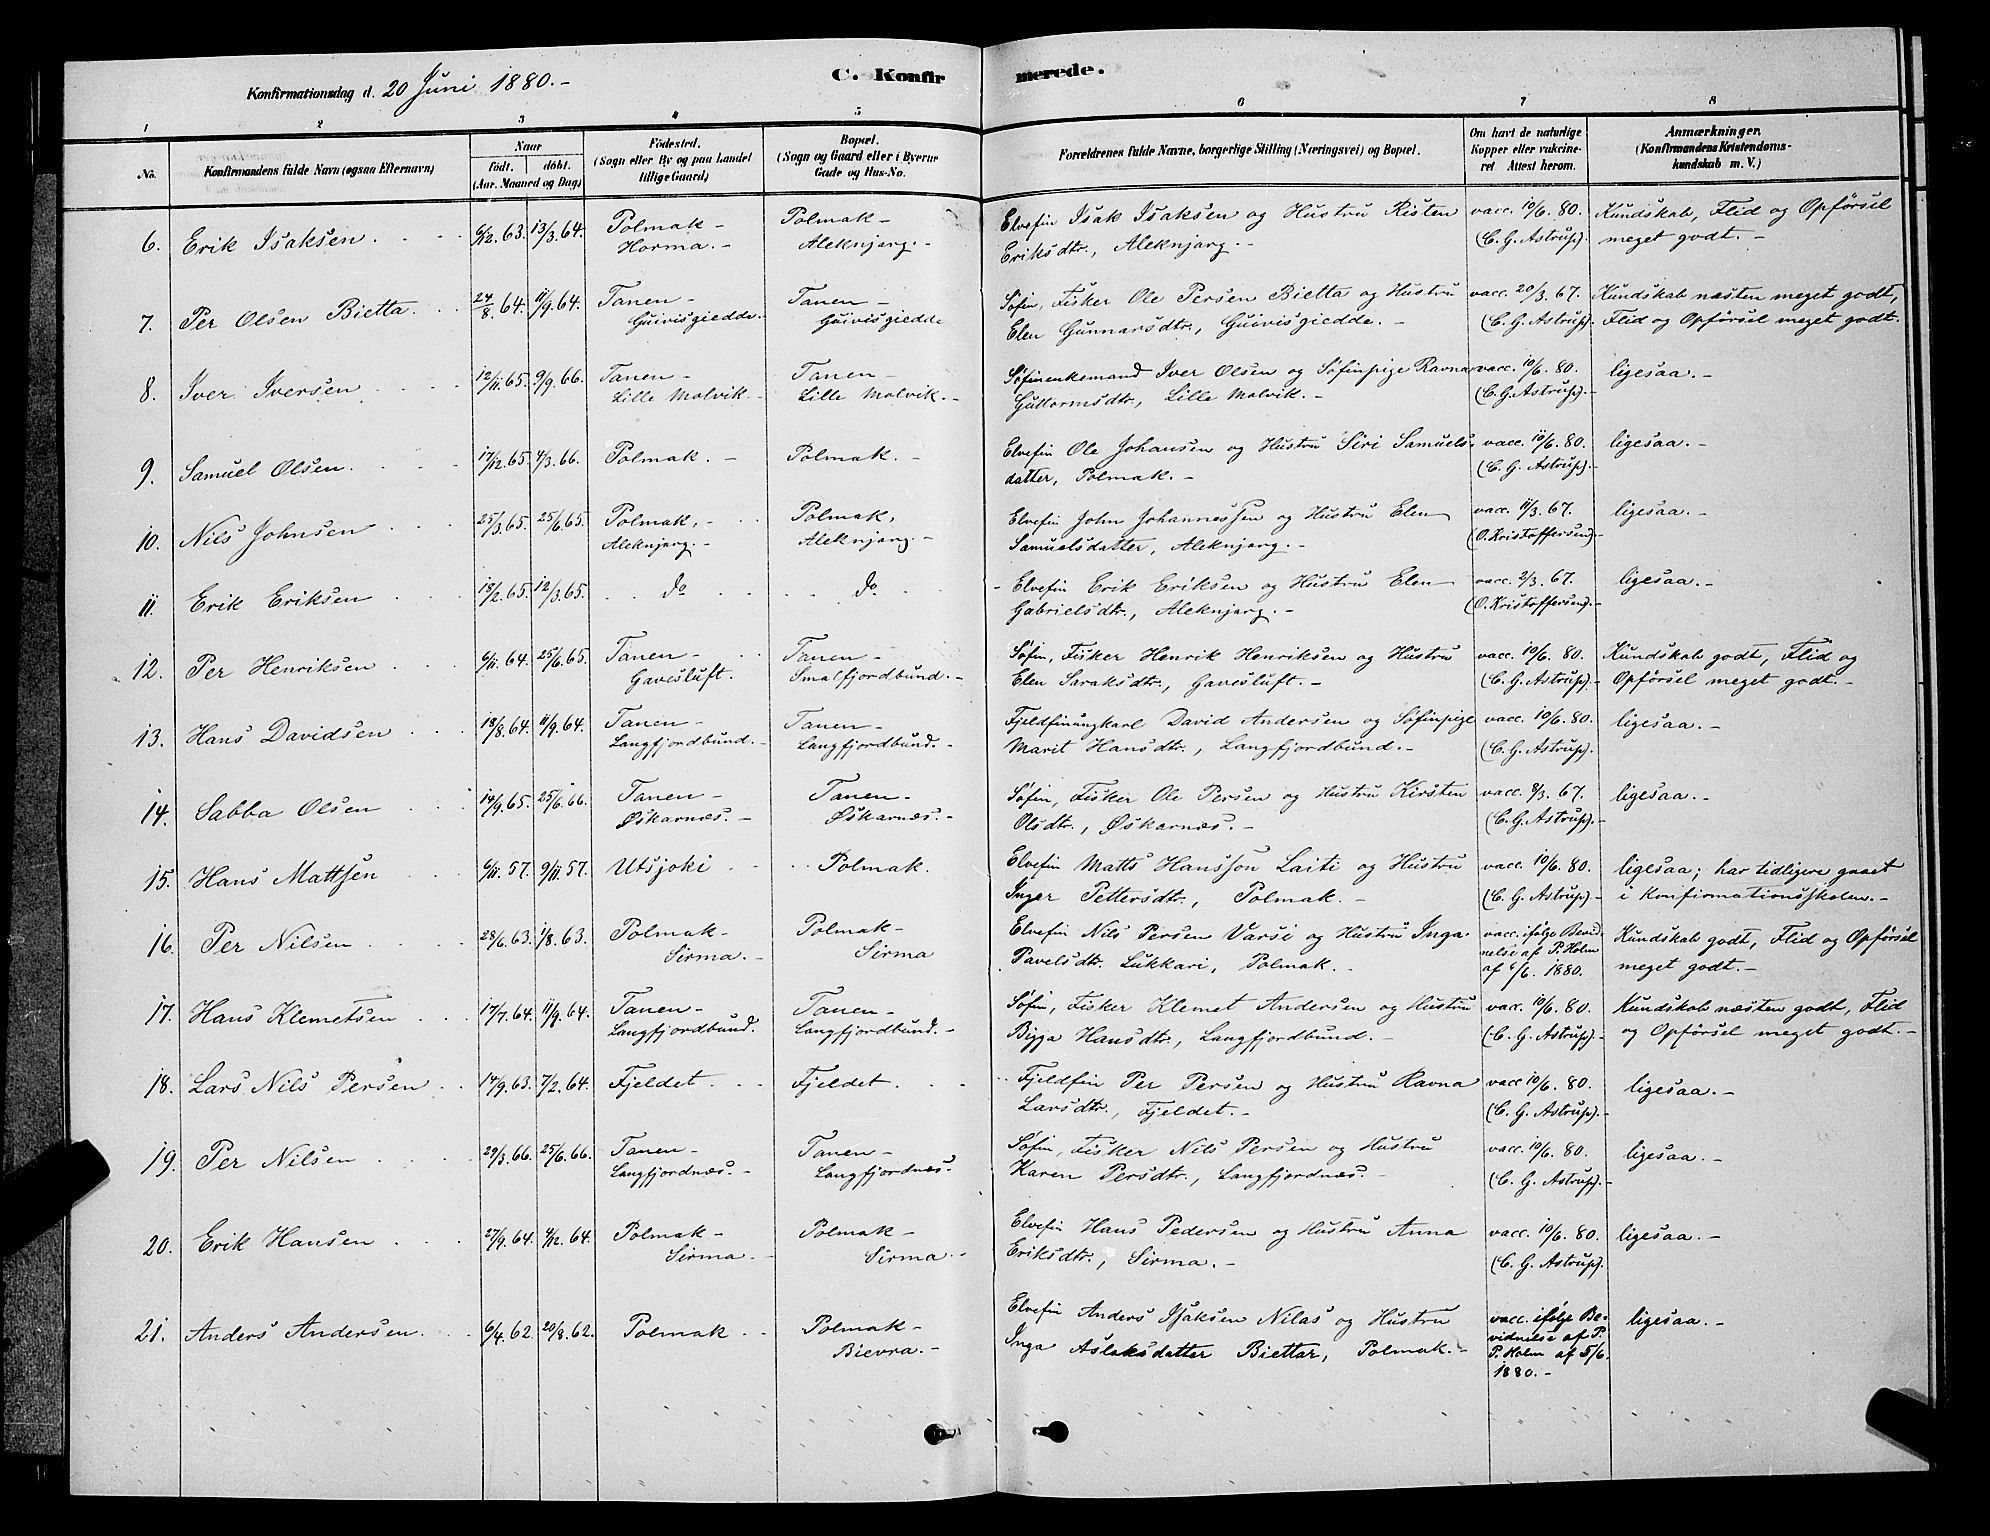 Konfirmationsdag d. 20 Juni 1880.-
C. Konfirmerede.
1 2 3 4 5 6 7 8
No.
Konfirmandens fulde Navn (ogsaa Efternavn)
Naar
födt. döbt.
(Aar. Maaned og Dag)
Födested.
(Sogn eller By og paa Landet
tillige Gaard)
Bopæl.
(Sogn og Gaard eller i Byerne
Gade og Hus-No.
Forældrenes fulde Navne, borgerlige Stilling (Næringsvei) og Bopæl.
Om havt de naturlige
Kopper eller vakcine-
ret Attest herom.
Anmærkninger.
(Konfirmandens Kristendoms-
kundskab m. V.)
6. Erik Isaksen 6/12.63. 13/3.64. Polmak- Polmak- Elvefin Isak Isaksen og Hustru Risten vacc. 10/6.80. Kundskab, Flid og Opførsel
Horma.- Aleknjarg.- Eriksdtr., Aleknjarg.- (C. G. Astrup).- meget godt.-
7. Per Olsen Bietta 24/8.64. 11/9.64. Tanen- Tanen- Søfin, Fisker Ole Persen Bietta og Hustru vacc. 20/3.67. Kundskab næsten meget godt,
Guivisgiedde. Guivisgiedde Elen Gunnarsdtr., Guivisgiedde.- (C. G. Astrup).- Flid og Opførsel meget godt.
8. Iver Iversen 12/11.65. 9/9.66. Tanen- Tanen- Søfinenkemand Iver Olsen og Søfinpige Ravna vacc. 10/6.80. ligesaa.-
Lille Molvik.- Lille Molvik.- Guttormsdtr., Lille Molvik.- (C. G. Astrup).-
9. Samuel Olsen 17/12.65. 4/3.66. Polmak.- Polmak.- Elvefin Ole Johansen og Hustru Siri Samuels- vacc. 10/6.80. ligesaa.-
datter, Polmak.- (C. G. Astrup).-
10. Nils Johnsen 25/3.65. 25/6.65. Polmak,- Polmak, Elvefin John Johannessen og Hustru Elen vacc. 11/3.67. ligesaa.-
Aleknjarg.- Aleknjarg.- Samuelsdatter, Aleknjarg.- (O. Kristoffersen).-
11. Erik Eriksen 18/2.65. 12/3.65. do do - Elvefin Erik Eriksen og Hustru Elen vacc. 2/3.67. ligesaa.-
Gabrielsdtr., Aleknjarg.- (O. Kristoffersen).-
12. Per Henriksen 6/11.64. 25/6.65. Tanen- Tanen- Søfin, Fisker Henrik Henriksen og Hustru vacc. 10/6.80. Kundskab godt, Flid og
Gavesluft. Smalfjordbund.- Elen Saraksdtr., Gavesluft.- (C. G. Astrup).- Opførsel meget godt.-
13. Hans Davidsen 18/8.64. 11/9.64. Tanen- Tanen- Fjeldfinungkarl David Andersen og Søfinpige vacc. 10/6.80. ligesaa.-
Langfjordbund.- Langfjordbund.- Marit Hansdtr., Langfjordbund.- (C. G. Astrup).
14. Sabba Olsen 14/9.65. 25/6.66. Tanen- Tanen- Søfin, Fisker Ole Persen og Hustru Kirsten vacc. 8/3.67. ligesaa.-
Øskarnæs.- Øskarnæs.- Olsdtr., Øskarnæs.- (C. G. Astrup).-
15. Hans Mattsen 6/11.57. 9/11.57. Utsjoki Polmak. Elvefin Matts Hansson Laiti og Hustru vacc. 10/6.80. ligesaa; har tidligere gaaet
Inger Pettersdtr., Polmak.- (C. G. Astrup).- i Konfirmationsskolen.-
16. Per Nilsen 28/6.63. 1/8.63. Polmak- Polmak- Elvefin Nils Persen Varsi og Hustru Inga vacc. ifølge Bevid- Kundskab godt, Flid og Opførsel
Sirma.- Sirma Pavelsdtr. Lukkari, Polmak.- nelse af P. Holm meget godt.-
af 6/6. 1880.
17. Hans Klemetsen 17/7.64. 11/9.64. Tanen- Tanen- Søfin, Fisker Klemet Andersen og Hustru vacc. 10/6.80. Kundskab næsten godt, Flid
Langfjordbund. Langfjordbund.- Bigga Hansdtr., Langfjordbund.- (C. G. Astrup).- og Opførsel meget godt.-
18. Lars Nils Persen 14/9.63. 7/2.64. Fjeldet. Fjeldet. Fjeldfin Per Persen og Hustru Ravna vacc 10/6.80. ligesaa.-
Larsdtr., Fjeldet.- (C. G. Astrup).-
19. Per Nilsen 29/3.66. 25/6.66. Tanen- Tanen- Søfin, Fisker Nils Persen og Hustru vacc. 10/6.80. ligesaa.-
Langfjordnæs.- Langfjordnæs. Karen Persdtr., Langfjordnæs.- (C. G. Astrup).-
20. Erik Hansen 27/9.64. 4/12.64. Polmak- Polmak- Elvefin Hans Pedersen og Hustru Anna vacc. 10/6.80. ligesaa.-
Sirma.- Sirma.- Eriksdtr., Sirma.- (C. G. Astrup).
21. Anders Andersen. 6/4.62. 20/8.62. Polmak Polmak- Elvefin Anders Isaksen Nilas og Hustru vacc. ifølge Be- ligesaa.-
Bievra.- Inga Aslaksdatter Biettar, Polmak.- vidnelse af P.
P. Holm af 5/6.
1880.-